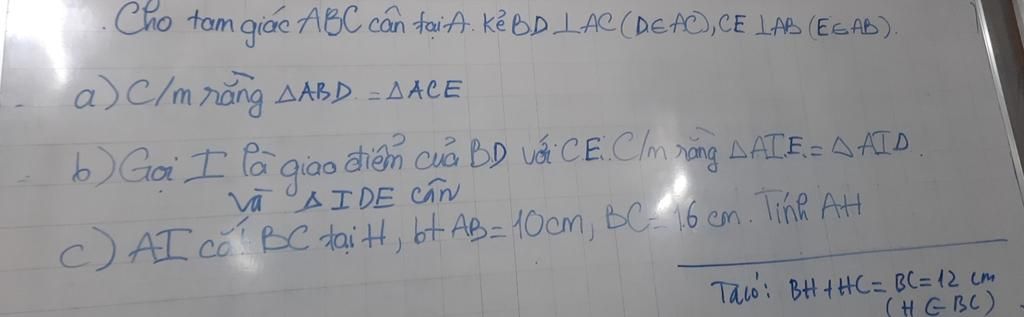 . Cho tam giác ABC cân tại A. Kẻ BD ⊥ AC (D∈AC), CE ⊥ AB (E∈AB).
a) C/m rằng ΔABD = ΔACE
b) Gọi I là giao điểm của BD với CE. C/m rằng ΔAIE = ΔAID.
và ΔIDE cân
c) AI cắt BC tại H, bt AB = 10cm, BC = 16 cm. Tính AH
Ta có: BH + HC = BC = 12 cm
(H ∈ BC)